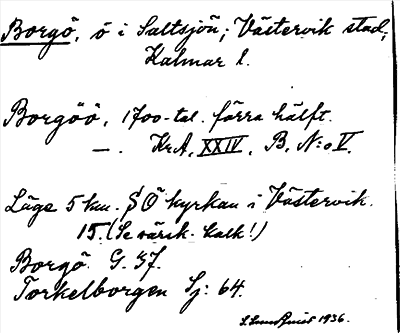 Borgö, ö i Saltsjön; Västervik stad,
Kalmar l.
Borgöö, 1700-tal. förra hälft.
—. KrA, XXIV, B, N:o V.
Läge 5 km. SÖ kyrkan i Västervik.
15. (Se särik. kalk!)
Borgö G. 37.
Torkelborgen Sj: 64.
1936.